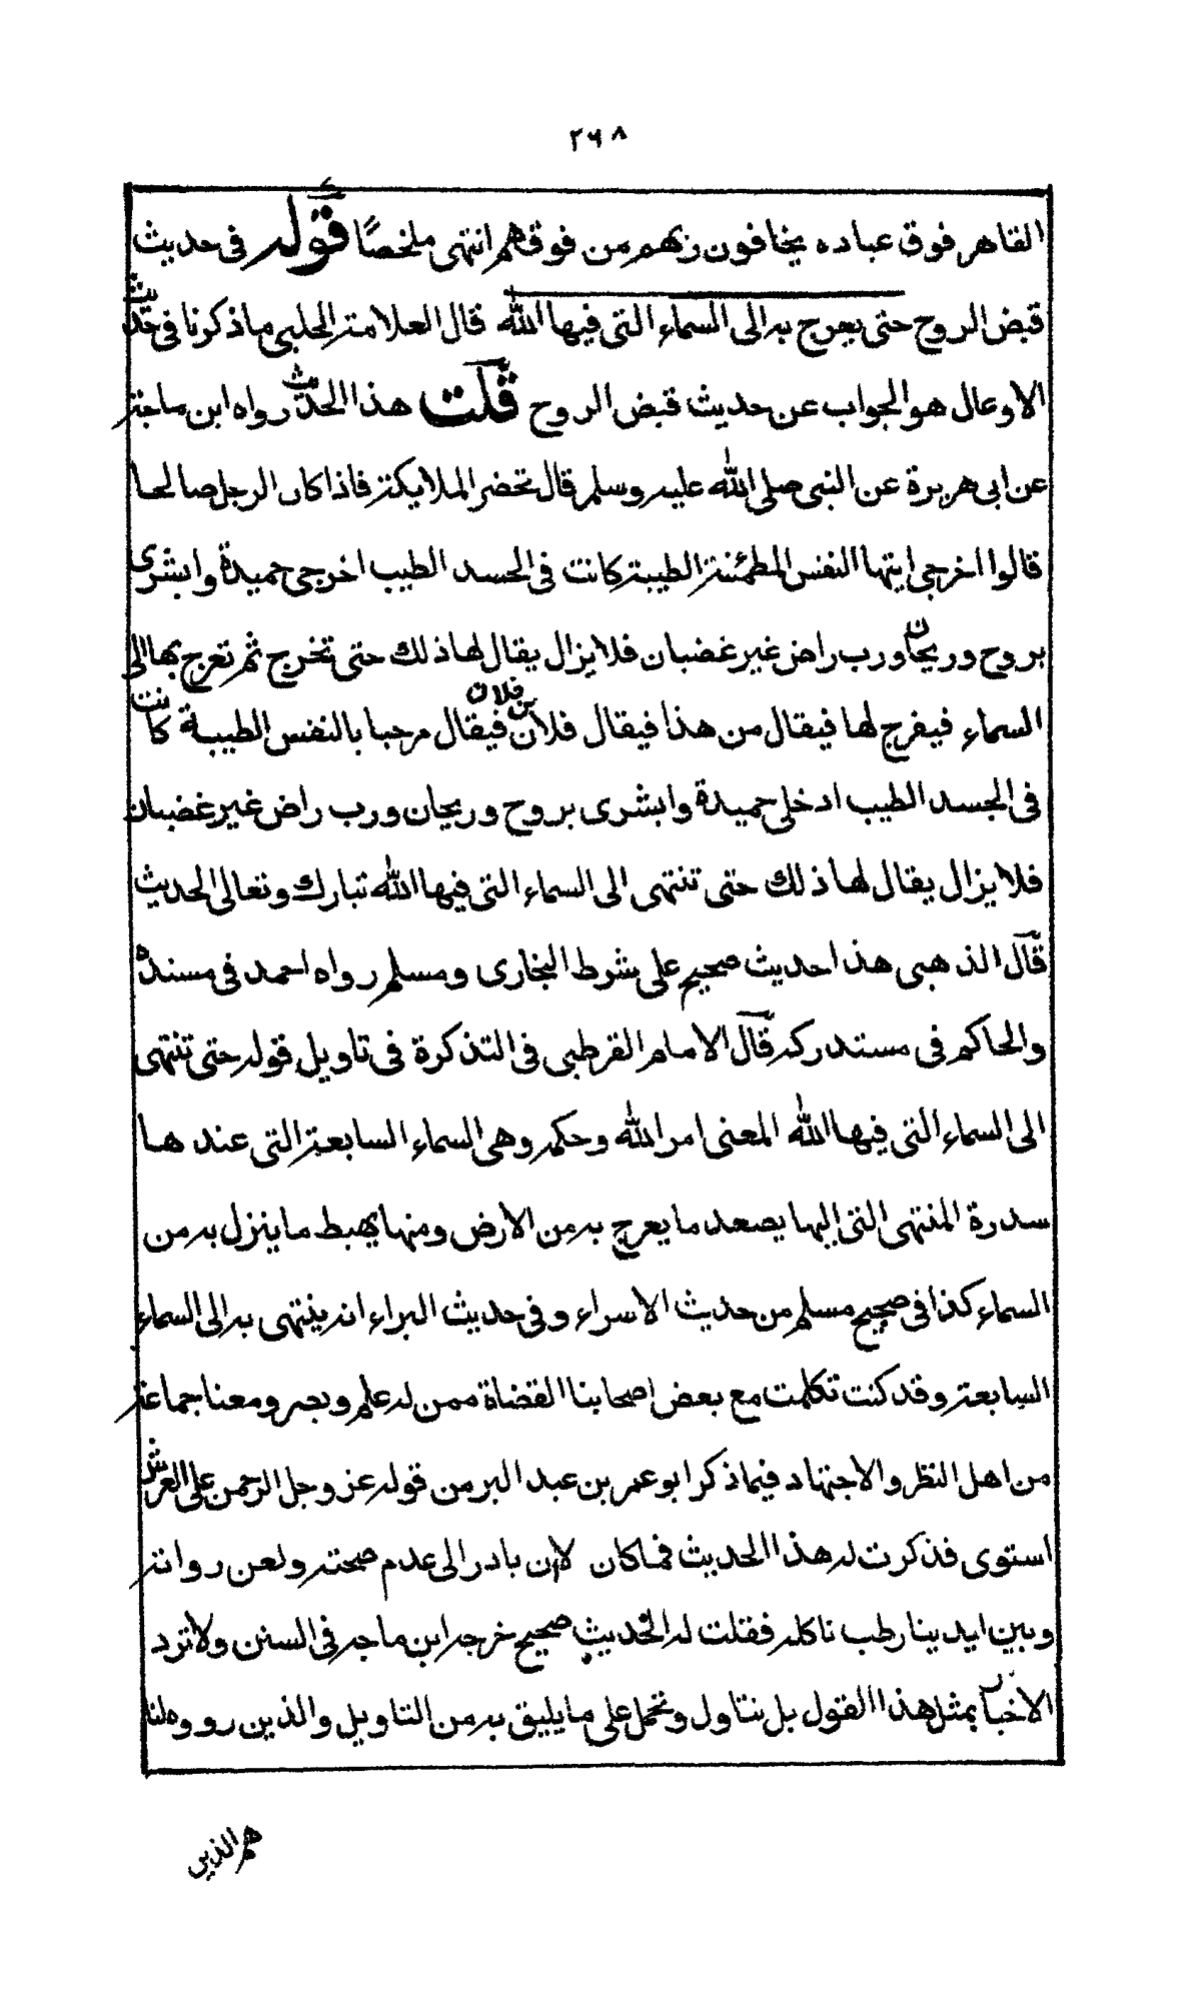 ٢٦٨
القاهر فوق عباده يخافون ربهم من فوقهم انتهى ملخصًا قوله فى حديث
قبض الروح حتى يعرج به الى السماء التى فيها الله قال العلامة الحلبى ماذكرنا فى حديث
الاوعال هو الجواب عن حديث قبض الروح قلت هذا الحديث رواه ابن ماجة
عن ابى هريرة عن النبى صلى الله عليه وسلم قال تحضر الملايكة فاذا كان الرجل صالحا
قالوا اخرجى ايتها النفس المطمئنة الطيبة كانت فى الجسد الطيب اخرجى حميدة وابشرى
بروح وريحان ورب راض غير غضبان فلا يزال يقال لها ذلك حتى تخرج ثم تعرج بها الى
السماء فيفرج لها فيقال من هذا فيقال فلان بن فلان فيقال مرحبا بالنفس الطيبة كانت
فى الجسد الطيب ادخلى حميدة وابشرى بروح وريحان ورب راض غير غضبان
فلا يزال يقال لها ذلك حتى تنتهى الى السماء التى فيها الله تبارك وتعالى الحديث
قال الذهبى هذا حديث صحيح على شرط البخارى ومسلم رواه احمد فى مسنده
والحاكم فى مستدركه قال الامام القرطبى فى التذكرة فى تاويل قوله حتى تنتهى
الى السماء التى فيها الله المعنى امر الله وحكمه وهى السماء السابعة التى عندها
سدرة المنتهى التى اليها يصعد ما يعرج به من الارض ومنها يهبط ما ينزل به من
السماء كذا فى صحيح مسلم من حديث الاسراء وفى حديث البراء انه ينتهى به الى السماء
السابعة وقد كنت تكلمت مع بعض اصحابنا القضاة ممن له علم وبصر ومعنا جماعة
من اهل النظر والاجتهاد فيما ذكر ابو عمر بن عبد البر من قوله عز وجل الرحمن على العرش
استوى فذكرت له هذا الحديث فما كان لان بادر الى عدم صحته ولعن رواته
وبين ايدينا رطب ناكله فقلت له الحديث صحيح خرجه ابن ماجه فى السنن ولا ترد
الاخبار بمثل هذا القول بل نتاول وتحمل على ما يليق به من التاويل والذين رووه لنا
هم الذين